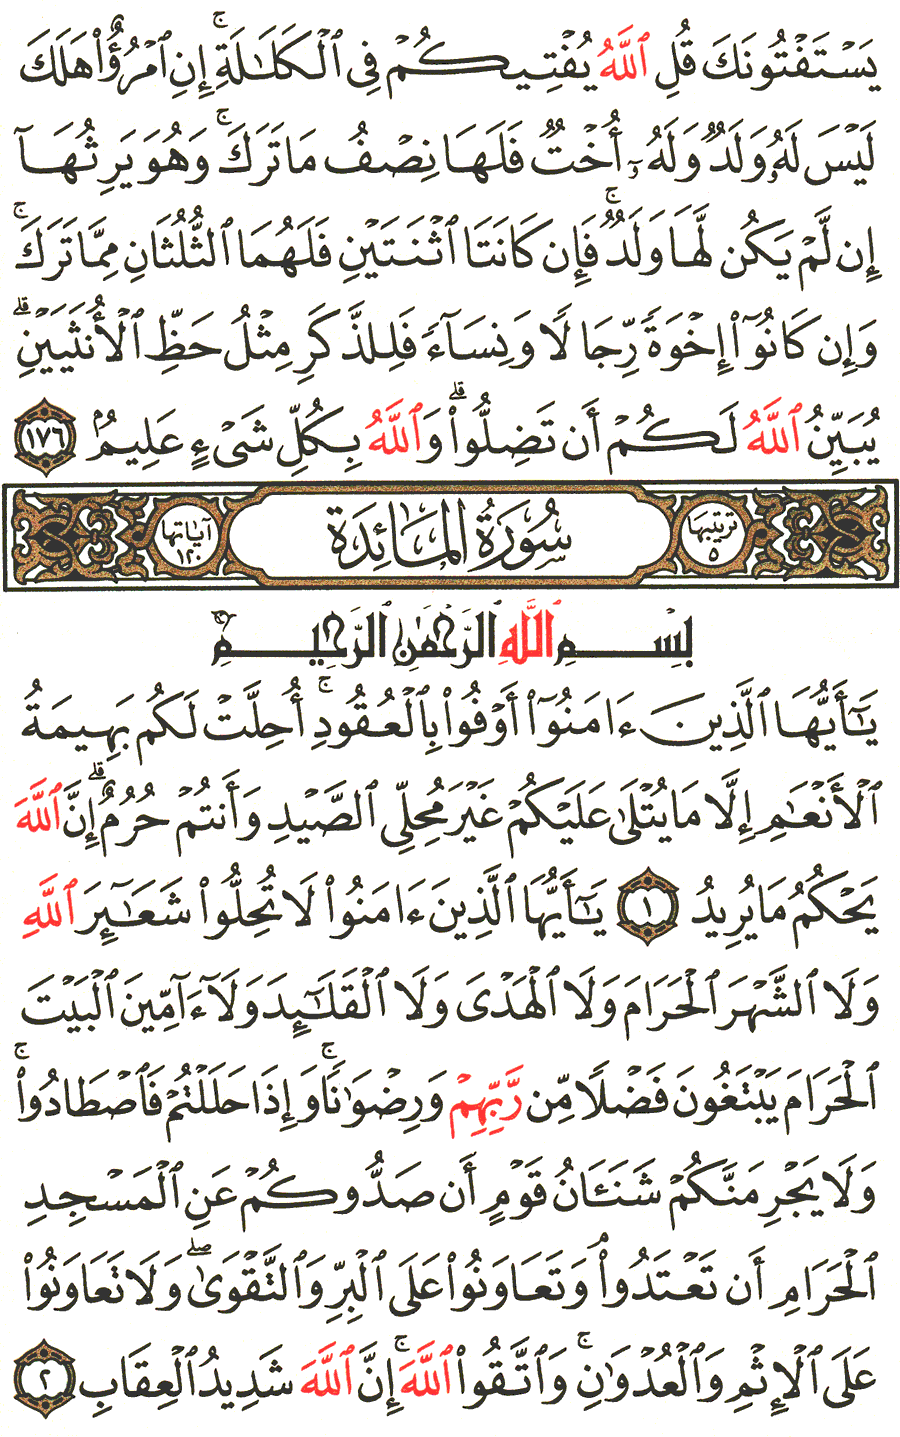 يَسْتَفْتُونَكَ قُلِ ٱللَّهُ يُفْتِيكُمْ فِى ٱلْكَلَـٰلَةِ ۚ إِنِ ٱمْرُؤٌا۟ هَلَكَ
لَيْسَ لَهُۥ وَلَدٌ وَلَهُۥٓ أُخْتٌ فَلَهَا نِصْفُ مَا تَرَكَ ۚ وَهُوَ يَرِثُهَآ
إِن لَّمْ يَكُن لَّهَا وَلَدٌ ۚ فَإِن كَانَتَا ٱثْنَتَيْنِ فَلَهُمَا ٱلثُّلُثَانِ مِمَّا تَرَكَ ۚ
وَإِن كَانُوٓا۟ إِخْوَةً رِّجَالًا وَنِسَآءً فَلِلذَّكَرِ مِثْلُ حَظِّ ٱلْأُنثَيَيْنِ ۗ
يُبَيِّنُ ٱللَّهُ لَكُمْ أَن تَضِلُّوا۟ ۗ وَٱللَّهُ بِكُلِّ شَىْءٍ عَلِيمٌۢ ١٧٦
ترتيبها ٥ سُورَةُ المَائِدَة آياتها ١٢٠
بِسْمِ ٱللَّهِ ٱلرَّحْمَـٰنِ ٱلرَّحِيمِ
يَـٰٓأَيُّهَا ٱلَّذِينَ ءَامَنُوٓا۟ أَوْفُوا۟ بِٱلْعُقُودِ ۚ أُحِلَّتْ لَكُم بَهِيمَةُ
ٱلْأَنْعَـٰمِ إِلَّا مَا يُتْلَىٰ عَلَيْكُمْ غَيْرَ مُحِلِّى ٱلصَّيْدِ وَأَنتُمْ حُرُمٌ ۗ إِنَّ ٱللَّهَ
يَحْكُمُ مَا يُرِيدُ ١ يَـٰٓأَيُّهَا ٱلَّذِينَ ءَامَنُوا۟ لَا تُحِلُّوا۟ شَعَـٰٓئِرَ ٱللَّهِ
وَلَا ٱلشَّهْرَ ٱلْحَرَامَ وَلَا ٱلْهَدْىَ وَلَا ٱلْقَلَـٰٓئِدَ وَلَآ ءَآمِّينَ ٱلْبَيْتَ
ٱلْحَرَامَ يَبْتَغُونَ فَضْلًا مِّن رَّبِّهِمْ وَرِضْوَٰنًا ۚ وَإِذَا حَلَلْتُمْ فَٱصْطَادُوا۟ ۚ
وَلَا يَجْرِمَنَّكُمْ شَنَـَٔانُ قَوْمٍ أَن صَدُّوكُمْ عَنِ ٱلْمَسْجِدِ
ٱلْحَرَامِ أَن تَعْتَدُوا۟ ۘ وَتَعَاوَنُوا۟ عَلَى ٱلْبِرِّ وَٱلتَّقْوَىٰ ۖ وَلَا تَعَاوَنُوا۟
عَلَى ٱلْإِثْمِ وَٱلْعُدْوَٰنِ ۚ وَٱتَّقُوا۟ ٱللَّهَ ۚ إِنَّ ٱللَّهَ شَدِيدُ ٱلْعِقَابِ ٢